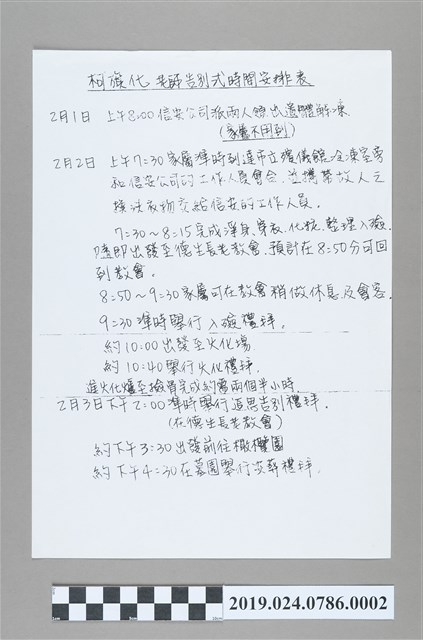 柯旗化 老師告別式時間安排表
2月1日 上午8:00信安公司派兩人領出遺體解凍
(家屬不用到)
2月2日 上午7:30家屬準時到達市立殯儀館冷凍室旁
和信安公司的工作人員會合,並攜帶故人之
換洗衣物交給信安的工作人員.
7:30~8:15完成淨身、穿衣、化粧、整理入殮.
隨即出發至德生長老教會.預計在8:50分可回
到教會.
8:50~9:30家屬可在教會稍做休息及會客.
9:30準時舉行入殮禮拜.
約10:00出發至火化場.
約10:40舉行火化禮拜.
進火化爐至撿骨完成約需兩個半小時.
2月3日下午2:00準時舉行追思告別禮拜.
(在德生長老教會)
約下午3:30出發前往橄欖園
約下午4:30在墓園舉行安葬禮拜.
2019.024.0786.0002